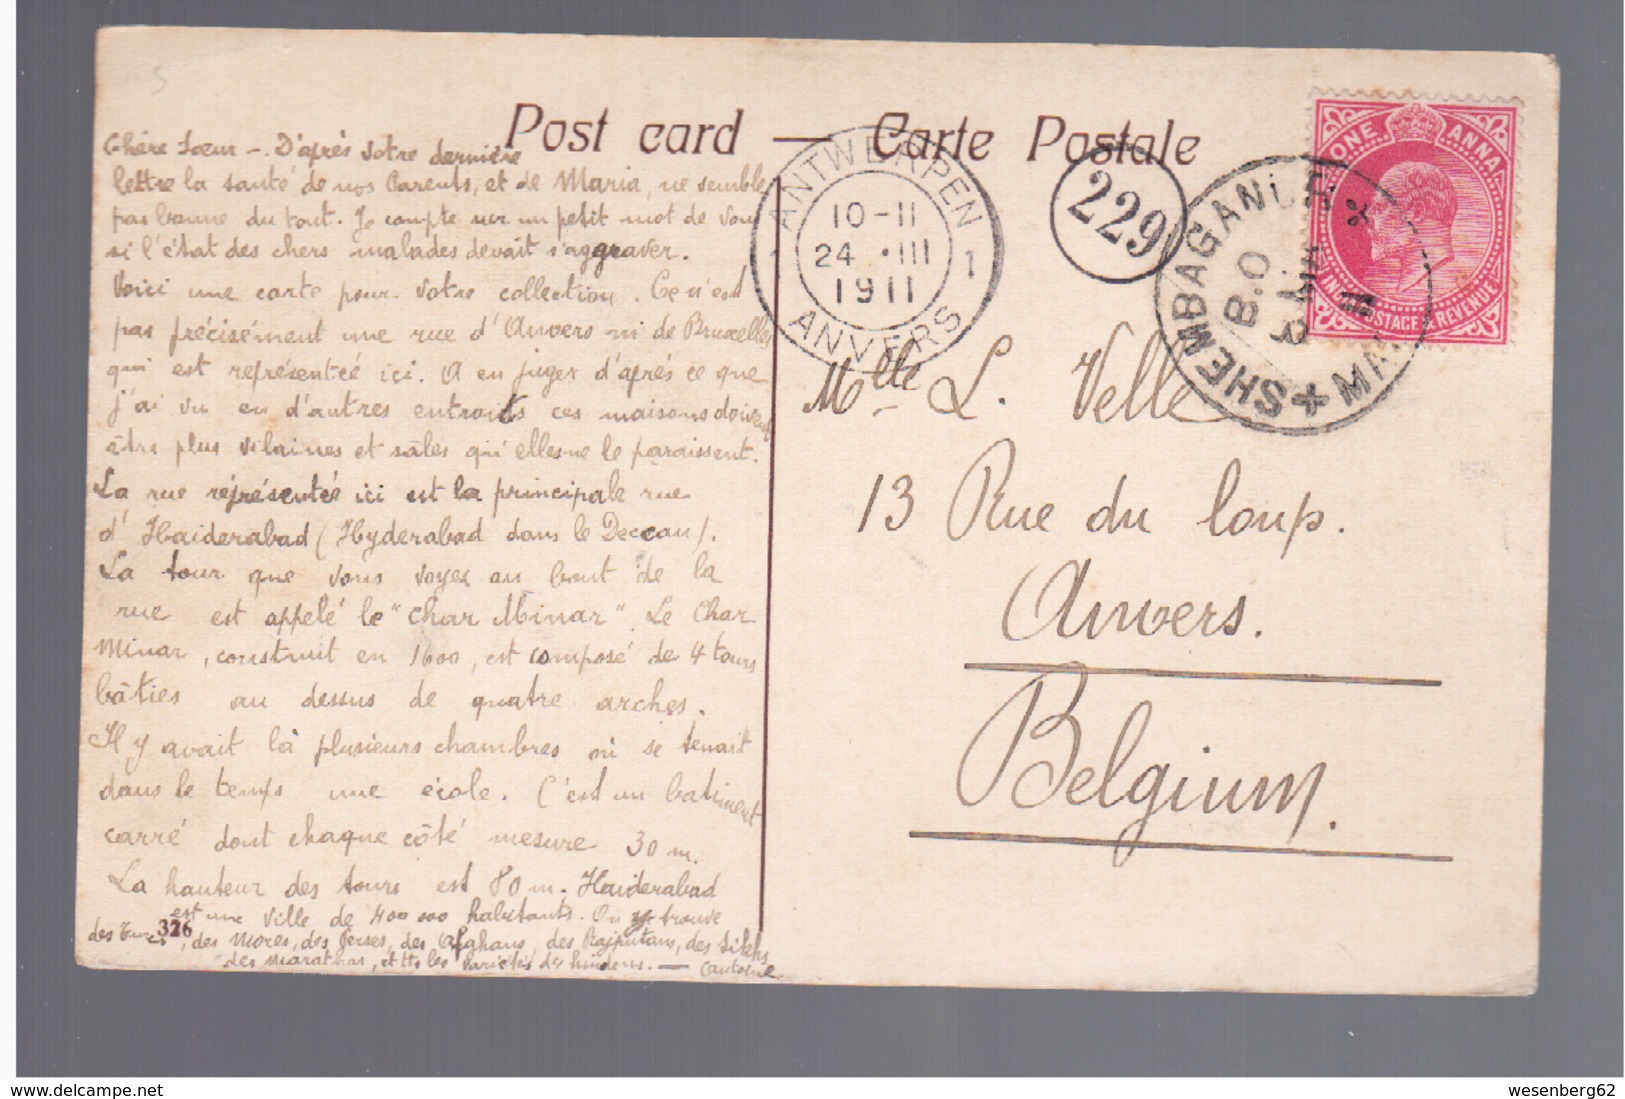 Post card — Carte Postale
Chère Soeur -. D'après votre dernière
lettre la santé de nos Parents, et de Maria, ne semble
pas bonne du tout. Je compte sur un petit mot de vous
si l'état des chers malades devait s'aggraver.
Voici une carte pour votre collection. Ce n'est
pas précisément une rue d'Anvers ni de Bruxelles
qui est représenteé ici. A en juger d'après ce que
j'ai vu en d'autres entroits ces maisons doivent
être plus vilaines et sâles qu'elles ne le paraissent.
La rue représenteé ici est la principale rue
d'Haiderabad (Hyderabad dans le Deccan).
La tour que vous voyez au bout de la
rue est appelé le "Char Minar". Le Char
Minar, construit en 1600, est composé de 4 tours
bâties au dessus de quatre arches.
Il y avait là plusieurs chambres où se tenait
dans le temps une école. C'est un batiment
carré dont chaque côté mesure 30 m.
La hauteur des tours est 80 m. Haiderabad
est une ville de 400 000 habitants. On y trouve
des 326, des Mores, des Perses, des Afghans, des Rajputans, des Sikhs
des Marathas, et tts les variétés des hindous. — Antoine
ANTWERPEN
1 10-11 1
24 .III
1911
ANVERS
229
SHEMBAGANUR
B.O
ONE ANNA
INDIA POSTAGE & REVENUE
Mlle L. Velle
13 Rue du loup.
Anvers.
Belgium.
wesenberg62